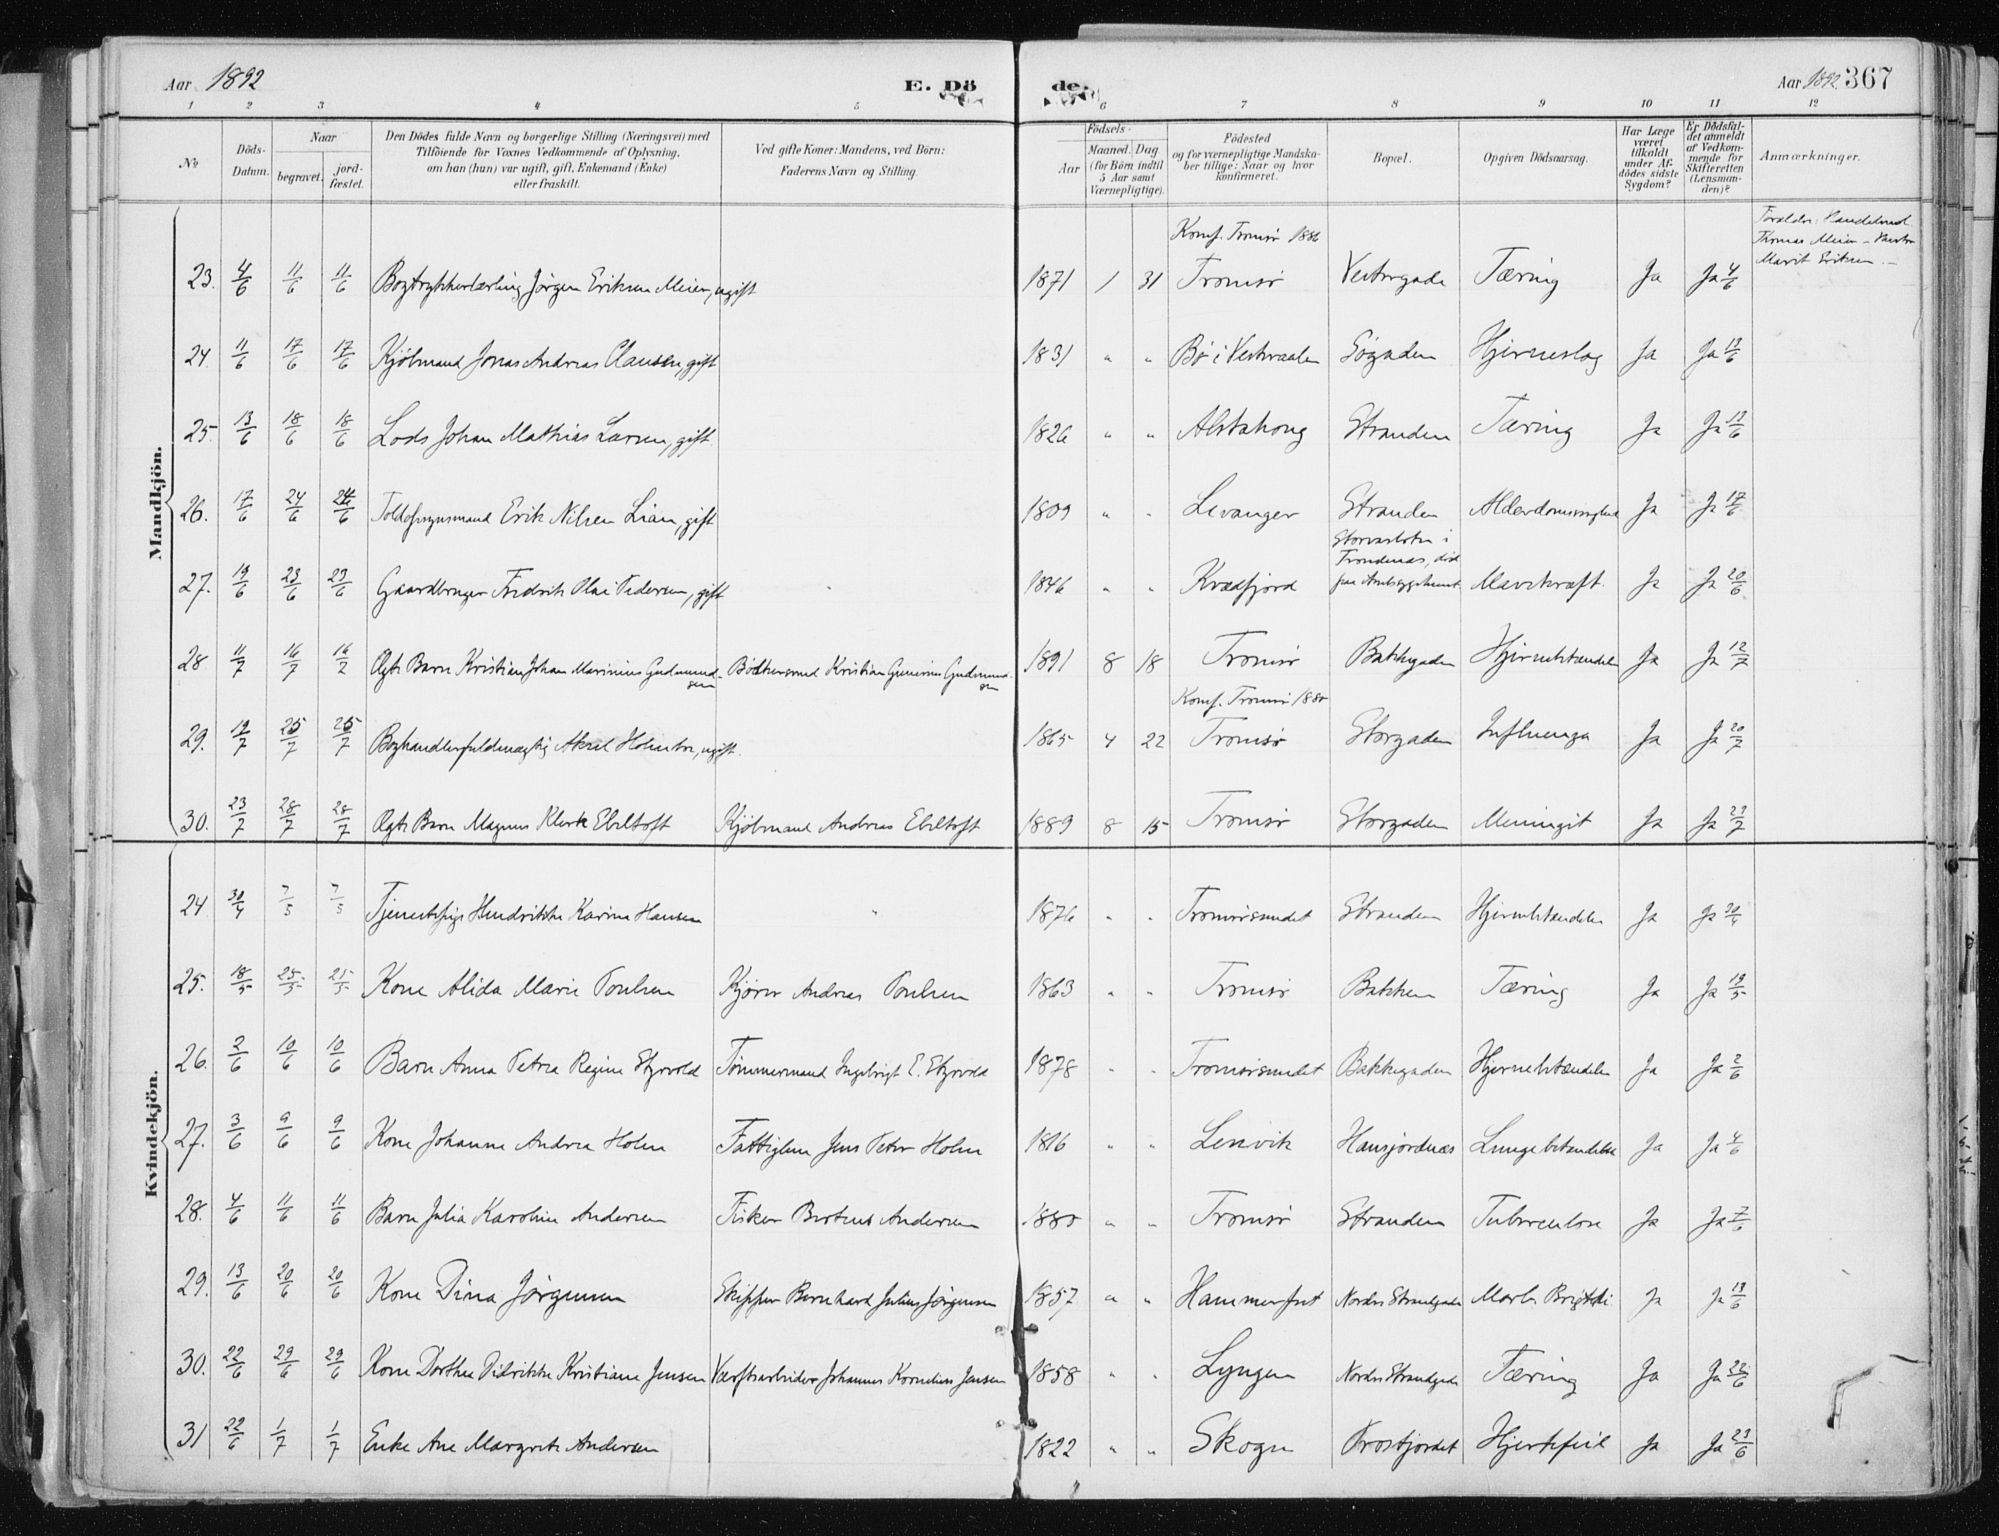 Aar 1892 E. Dö de. Aar 1892 367
1 2 3 4 5 6 7 8 9 10 11 12
No
Döds-Datum.
Naar
begravet.
jord-fæstet.
Den Dödes fulde Navn og borgerlige Stilling (Næringsvei) med
Tilföiende for Voxnes Vedkommende af Oplysning,
om han (hun) var ugift, gift, Enkemand (Enke)
eller fraskilt.
Ved gifte Koner: Mandens, ved Börn:
Faderens Navn og Stilling.
Födsels-
Aar
Maaned. Dag
(for Börn indtil
5 Aar samt
Værnepligtige).
Födested
og for værnepligtige Mandska-
ber tillige: Naar og hvor
konfirmeret.
Bopæl.
Opgiven Dödsaarsag.
Har Læge
været
tilkaldt
under Af-
dödes sidste
Sygdom?
Er Dödsfal-
det anmeldt
af Vedkom-
mende for
Skifteretten
(Lensman-
den)?
Anmærkninger.
Mandkjön.
Konf. Tromsø 1886
Forældre: Handelsmd
Thomas Meier
Marit Eriksen
23. 4/6 11/6 11/6 Bogtrykkerlærling Jörgen Eriksen Meier, ugift 1871 1 31 Tromsø Vestregade Tæring Ja Ja 4/6
24 11/6 17/6 17/6 Kjöbmand Jonas Andreas Clausen, gift 1831 " " Bø i Vesteraalen Søgaden Hjerneslag Ja Ja 13/6
25. 13/6 18/6 18/6 Lods Johan Mathias Larsen, gift 1826 " " Alstahoug Stranden Tæring Ja Ja 13/6
26. 17/6 24/6 24/6 Toldopsynsmand Erik Nilsen Lian, gift 1809 " " Levanger Stranden Alderdomssvaghed Ja Ja 17/6
27. 19/6 23/6 23/6 Gaardbruger Fredrik Olai Pedersen, gift 1846 " " Kvædfjord i Trondenæs, död paa Amtssygehuset Mavekræft Ja Ja 20/6
28 11/7 16/7 16/7 Ægte Barn Kristian Johan Marinius Gudmundsen Bödkersvend Kristian Gudmundsen 1891 8 18 Tromsø Bakkegaden Hjernebetændelse Ja Ja 12/7
Konf. Tromsø 1880
29. 19/7 25/7 25/7 Boghandlerfuldmægtig Aksel Holmboe, ugift. 1865 4 22 Tromsø Storgaden Influenza Ja Ja 20/7
30. 23/7 28/7 28/7 Ægte Barn Magnus Klerk Ebeltoft Kjöbmand Andreas Ebeltoft 1889 8 15 Tromsø Storgaden Meningit Ja Ja 23/7
Kvindekjön.
24 30/4 7/5 7/5 Tjenestepige Hendrikke Karine Hansen 1876 " " Tromsøsundet Stranden Hjernebetændelse Ja Ja 30/4
25. 18/5 25/5 25/5 Kone Alida Marie Poulsen Kjører Andreas Poulsen 1863 " " Tromsø Bakken Tæring Ja Ja 19/5
26. 2/6 10/6 10/6 Barn Anna Petra Regine Styrvold Tömmermand Ingebrigt E. Styrvold 1878 " " Tromsøsundet Bakkegaden Hjernebetændelse Ja Ja 2/6
27. 3/6 9/6 9/6 Kone Johanne Andrea Holm Fattiglem Jens Peter Holm 1816 " " Lenvik Hansjordnæs Lungebetændelse Ja Ja 4/6
28. 4/6 11/6 11/6 Barn Julia Karoline Andersen Fisker Berteus Andersen 1880 " " Tromsø Stranden Tuberculose Ja Ja 7/6
29. 13/6 20/6 20/6 Kone Dina Jörgensen Skipper Bernhard Julius Jörgensen 1857 " " Hammerfest Nordre Strandgade Morb. Brightii Ja Ja 13/6
30. 22/6 29/6 29/6 Kone Dorthea Didrikke Kristiane Jensen Værftsarbeider Johannes Kornelius Jensen 1858 " " Lyngen Nordre Strandgade Tæring Ja Ja 22/6
31 22/6 1/7 1/7 Enke Ane Margrete Andersen 1822 " " Skogn Prostjordet Hjertefeil Ja Ja 23/6